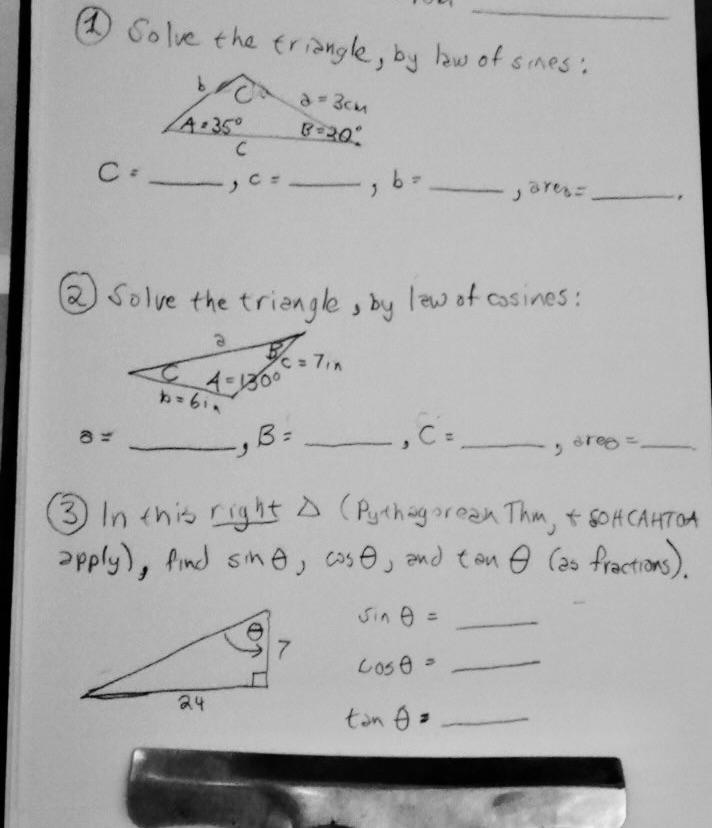 ① Solve the triangle, by law of sines:
b C a = 3cm
A = 35° B = 20°
c
C = ____, c = ____, b = ____, area = ____.
② Solve the triangle, by law of cosines:
a
C A = 130° B c = 7in
b = 6in
a = ____, B = ____, C = ____, area = ____
③ In this right △ (Pythagorean Thm, + SOHCAHTOA
apply), find sin θ, cos θ, and tan θ (as fractions).
θ 7
24
sin θ = ____
cos θ = ____
tan θ = ____